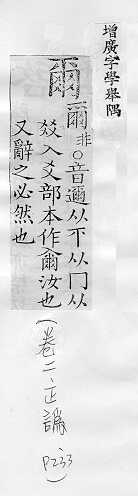 增廣字學舉隅
爾
爾非○音邇从不从冂从
㸚入爻部本作尒汝也
又辭之必然也
(卷二·正譌 P233)